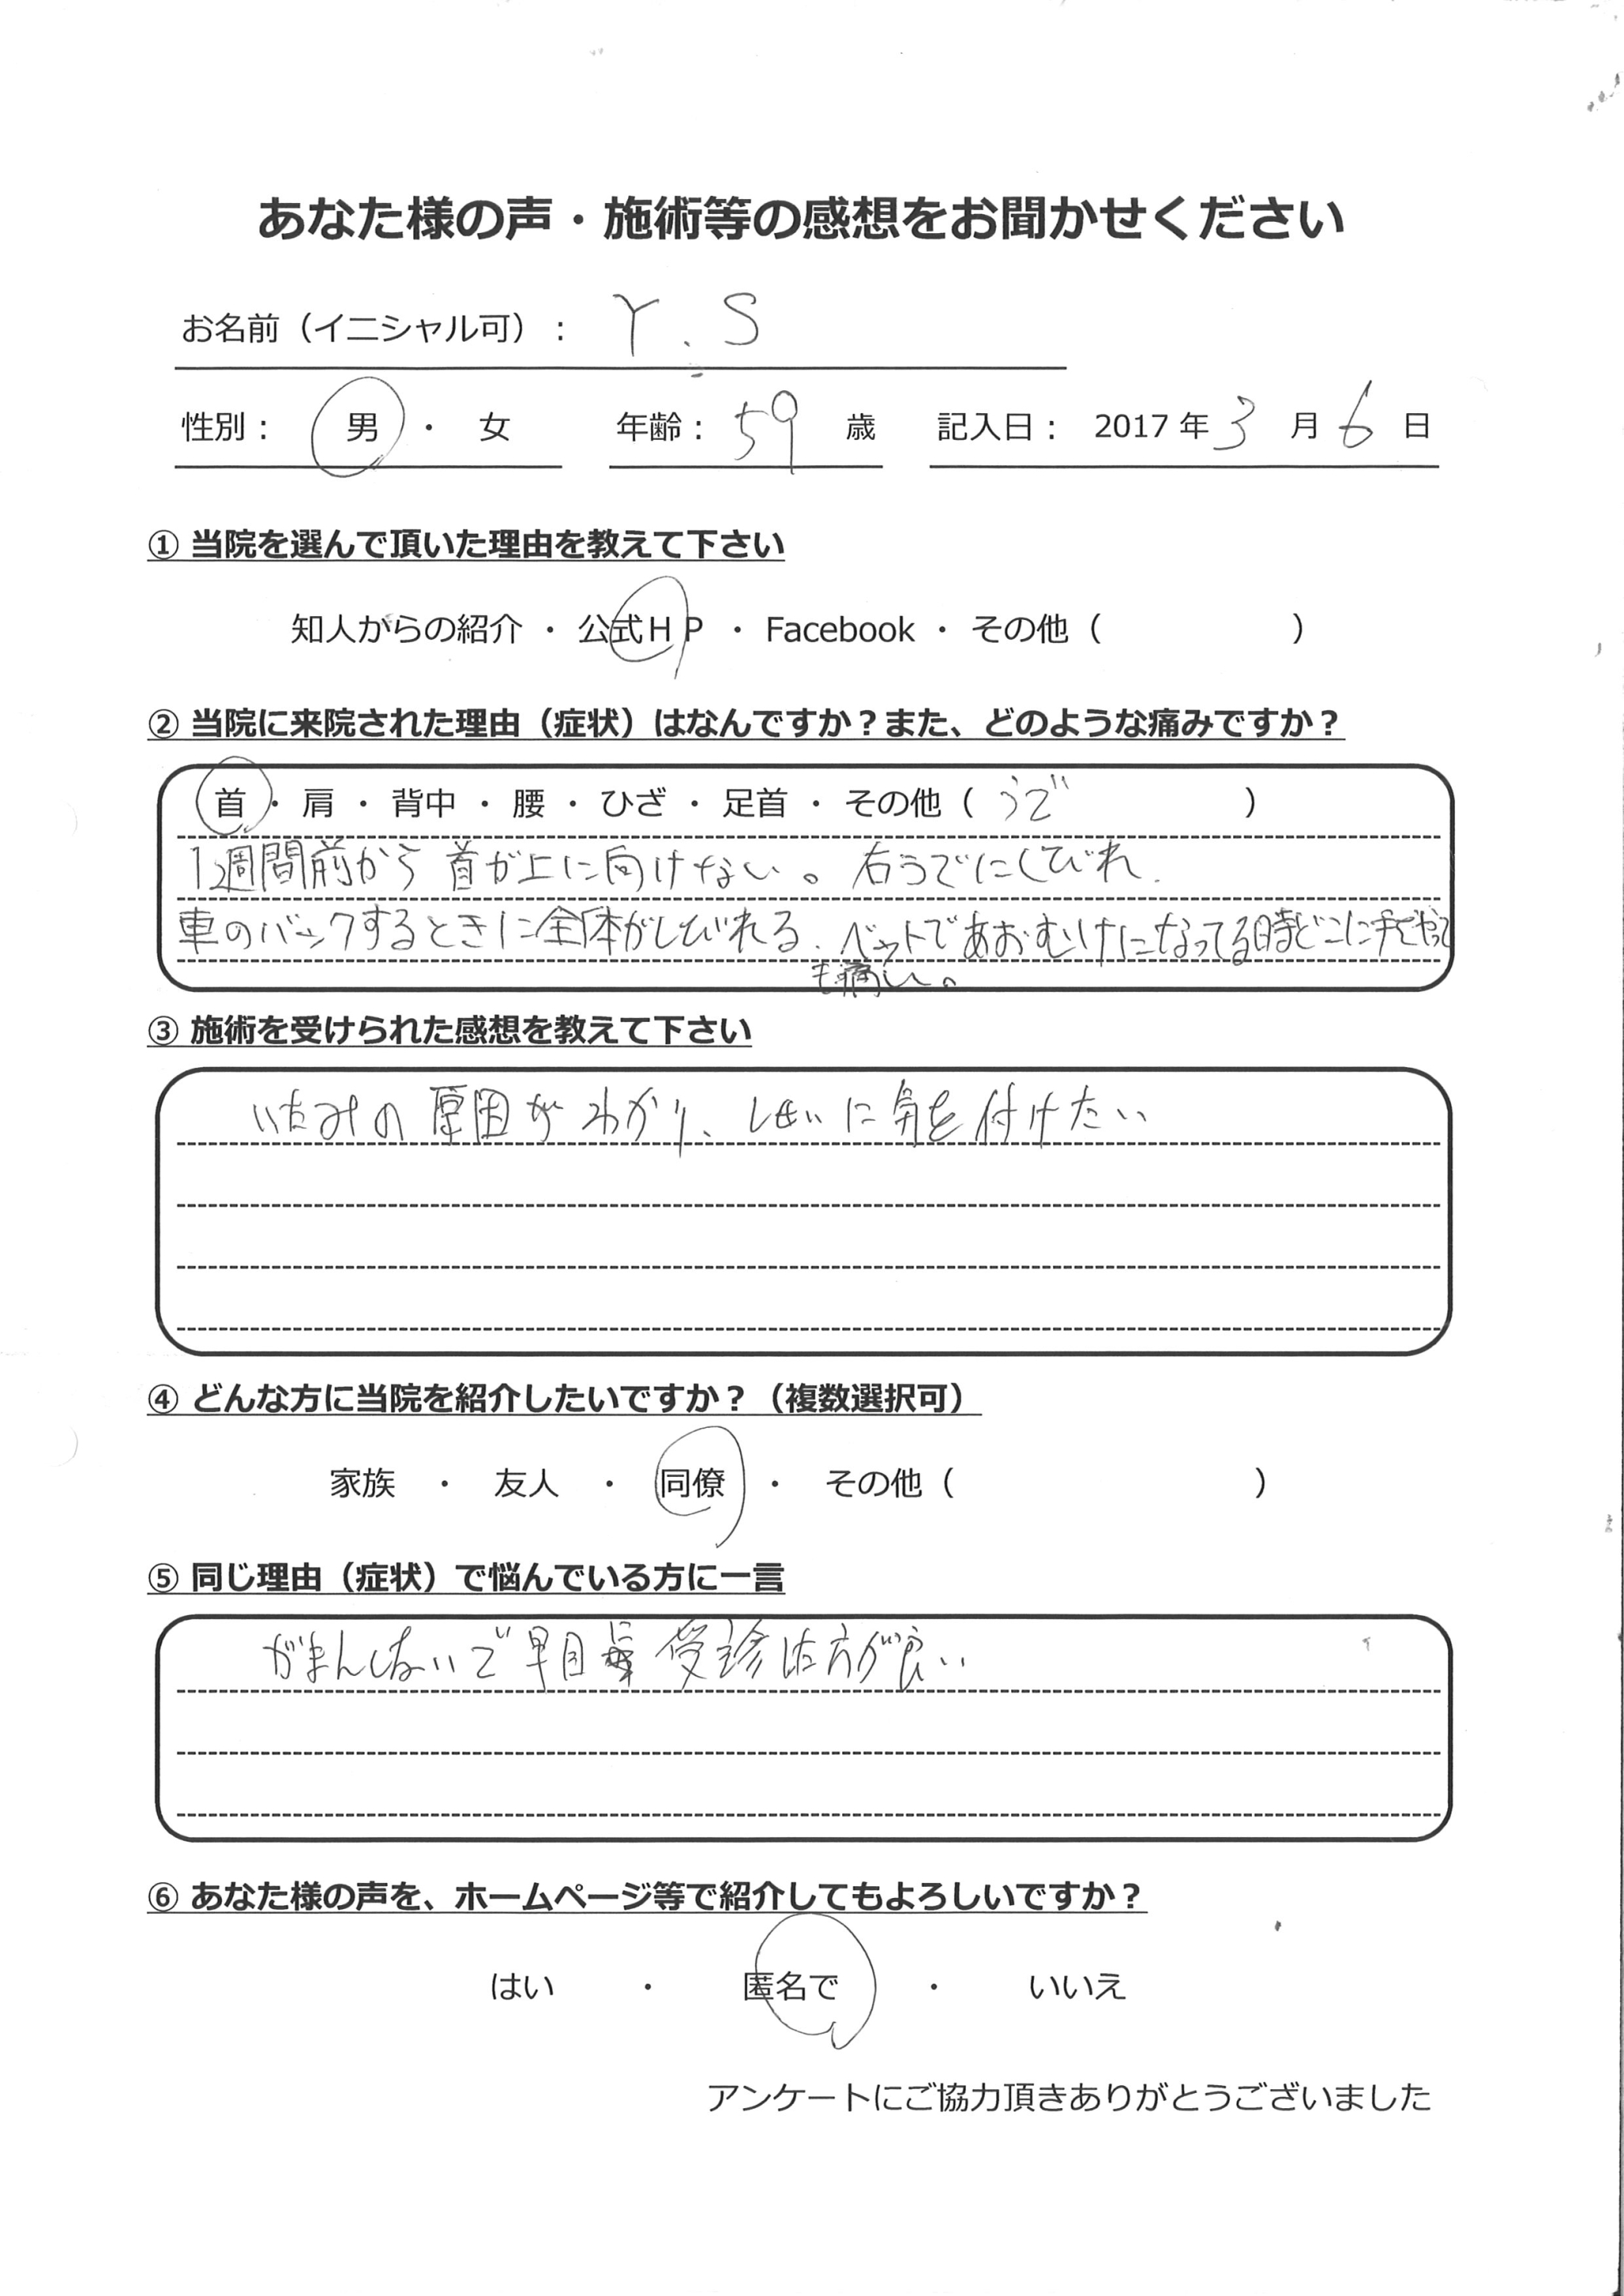 あなた様の声・施術等の感想をお聞かせください
お名前（イニシャル可）： Y.S
性別： 男 ・ 女 年齢： 59 歳 記入日： 2017年 3 月 6 日
① 当院を選んで頂いた理由を教えて下さい
知人からの紹介 ・ 公式ＨＰ ・ Facebook ・ その他（ ）
② 当院に来院された理由（症状）はなんですか？また、どのような痛みですか？
首 ・ 肩 ・ 背中 ・ 腰 ・ ひざ ・ 足首 ・ その他（ うで ）
1週間前から首が上に向けない。右うでにしびれ.
車のバックするときに全体がしびれる. ベットであおむけになってる時どこに手をやって
も痛い。
③ 施術を受けられた感想を教えて下さい
いたみの原因がわかり、しせいに気を付けたい
④ どんな方に当院を紹介したいですか？（複数選択可）
家族 ・ 友人 ・ 同僚 ・ その他（ ）
⑤ 同じ理由（症状）で悩んでいる方に一言
がまんしないで早目に受診した方が良い
⑥ あなた様の声を、ホームページ等で紹介してもよろしいですか？
はい ・ 匿名で ・ いいえ
アンケートにご協力頂きありがとうございました